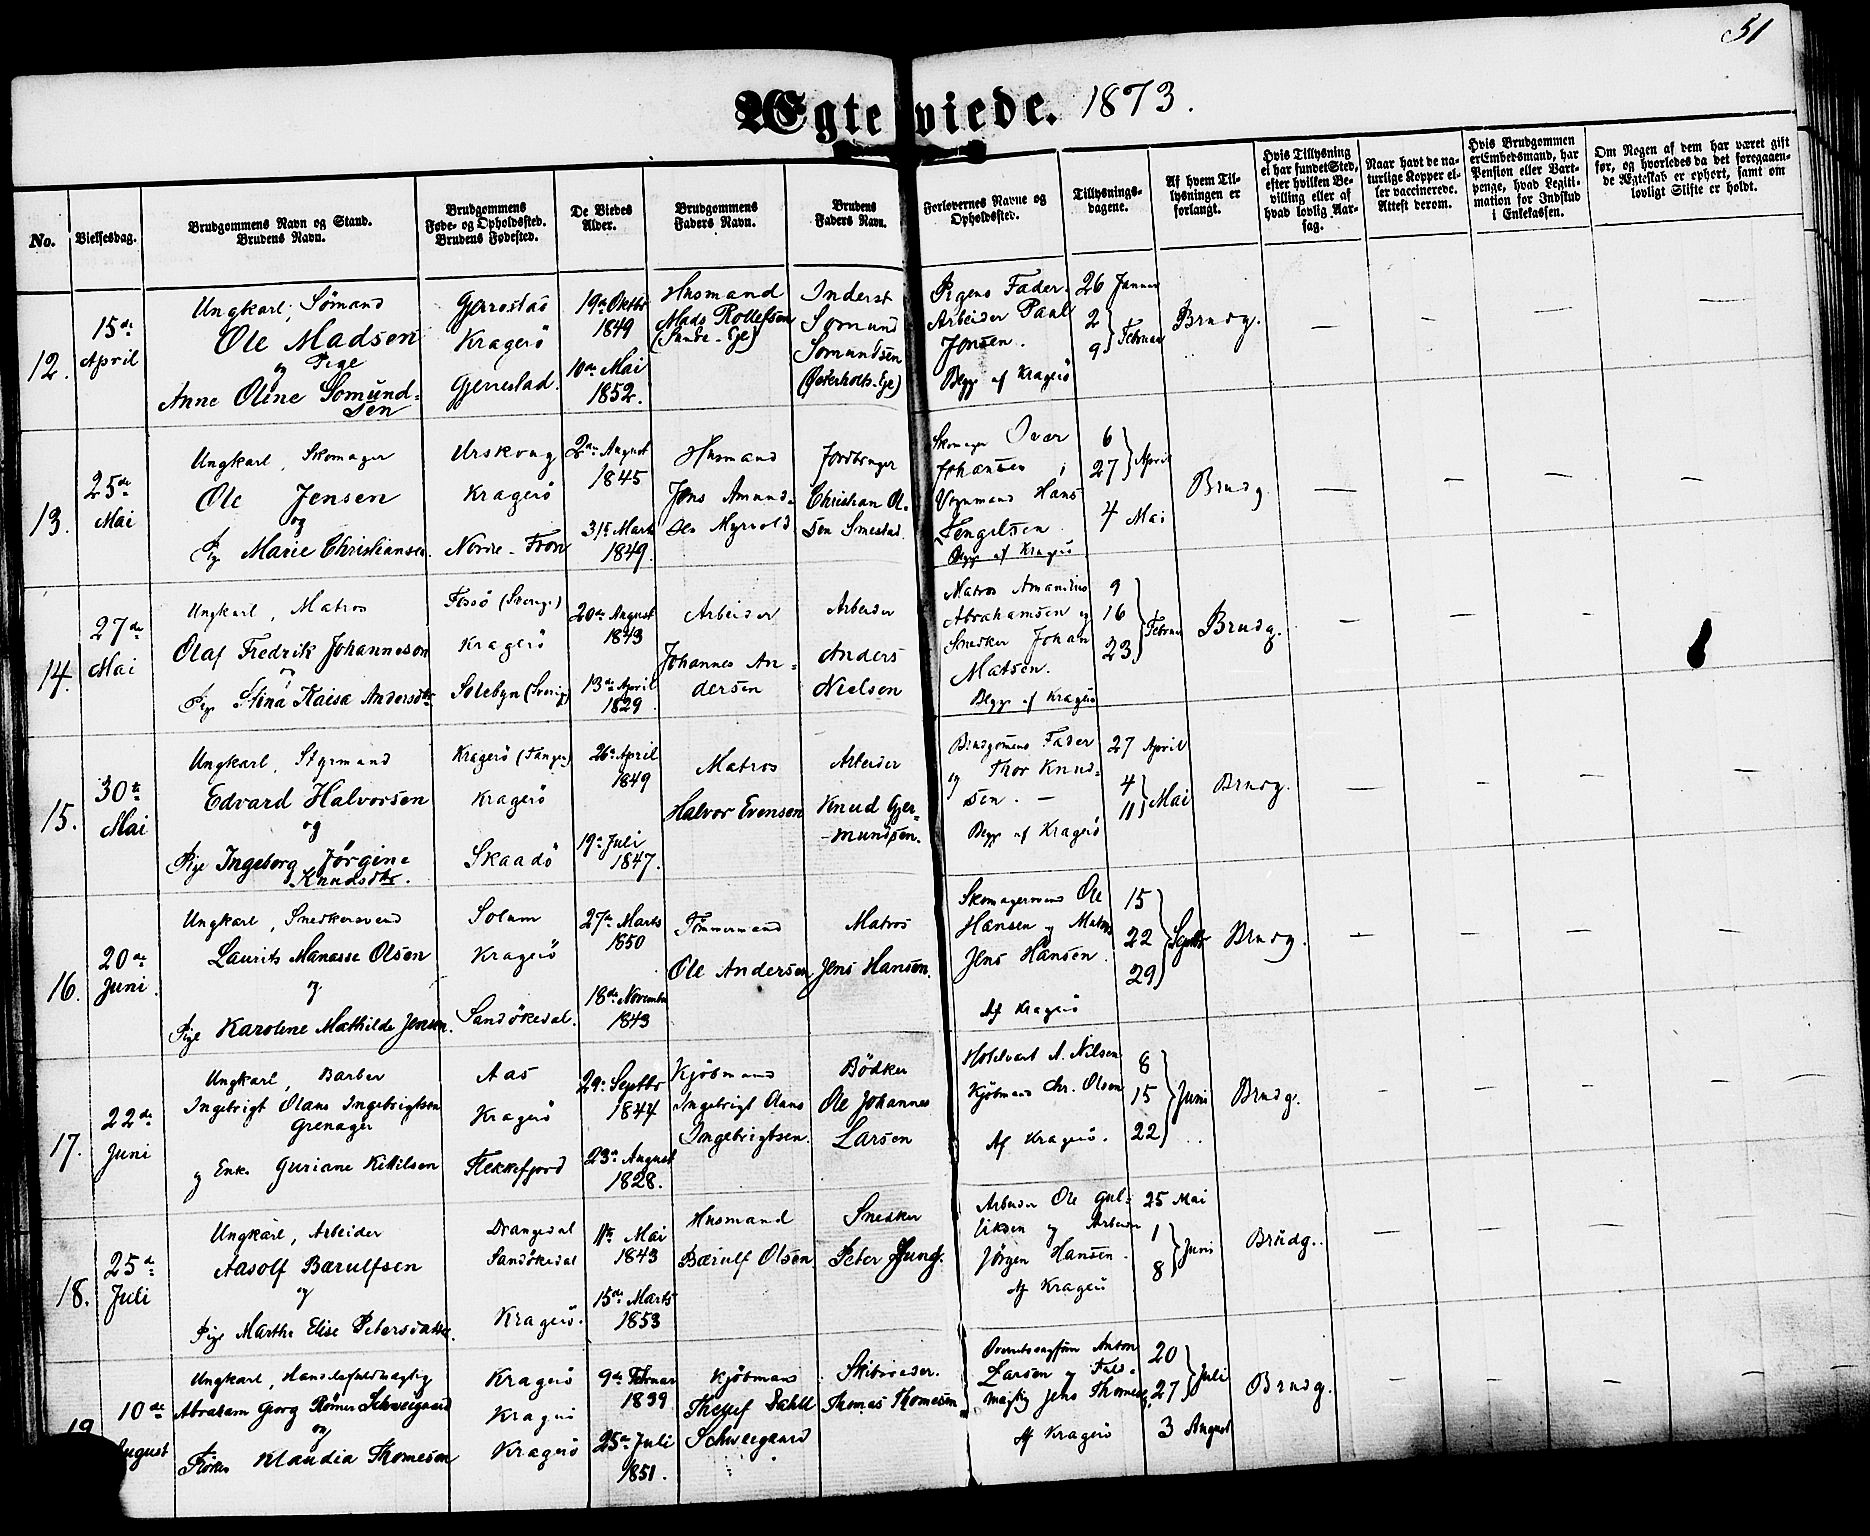 51
Ægteviede. 1873.
No.
Vielsesdag.
Brudgommens Navn og Stand.
Brudens Navn.
Brudgommens
Føde- og Opholdssted.
Brudens Fødested.
De Viedes
Alder.
Brudgommens
Faders Navn.
Brudens
Faders Navn.
Forlovernes Navne og
Opholdssted.
Tillysnings-
dagene.
Af hvem Til-
lysningen er
forlangt.
Hvis Tillysning
ei har fundet Sted,
efter hvilken Be-
villing eller af
hvad lovlig Aar-
sag.
Naar havt de na-
turlige Kopper el-
ler vaccinerede.
Attest derom.
Hvis Brudgommen
er Embedsmand, har
Pension eller Vart-
penge, hvad Legiti-
mation for Indskud
i Enkekassen.
Om Nogen af dem har været gift
før, og hvorledes da det foregaaen-
de Ægteskab er ophørt, samt om
lovligt Skifte er holdt.
12.
15de
April
Ungkarl, Sømand
Ole Madsen
og Pige
Anne Oline Somund-
sen
Gjerrestad
Kragerö
Gjerrestad.
19de Oktbr
1849
10de Mai
1852.
Husmand
Mads Rollefsen
(Sunde-Eje)
Inderst
Somund
Somundsen
(Østerholts-Eje)
Pigens Fader
Arbeider Paul
Jonsen.
Begge af Kragerö
26 Januar
2
9 } Februar
Brudg.
— — — —
13.
25de
Mai
Ungkarl, Skomager
Ole Jensen
og
Pige Marie Christiansen.
Urskoug
Kragerö
Nordre-Fron
2den August
1845
31te Marts
1849.
Husmand
Jens Amund-
sen Myrvold
Jordbruger
Christian Ol-
sen Smestad.
Skomager Ivar
Johansen
Hans
Tengelsen
Begge af Kragerö
6
27 } April
4 Mai
Brudg.
— — — —
14.
27de
Mai
Ungkarl, Matros
Olaf Fredrik Johanneson
og
Pige Stina Kaisa Andersdtr
Fossö (Sverige)
Kragerö
Solebyn (Sverig)
20de August
1843
13de April
1829.
Arbeider
Johannes An-
dersen
Arbeider
Anders
Nielsen
Matros Amandius
Abrahamsen og
Snedker Johan
Matsen.
Begge af Kragerö
9
16
23 } Februar
Brudg.
— — —
15.
30te
Mai
Ungkarl, Styrmand
Edvard Halvorsen
og
Pige Ingeborg Jörgine
Knudsdtr.
Kragerö (Tangen)
Kragerö
Skaadö
26de April
1849
19de Juli
1847.
Matros
Halvor Evensen
Arbeider
Knud Gjer-
mundsen.
Brudgommens Fader
og Thor Knud-
sen. —
Begge af Kragerö
27 April
4
11 } Mai
Brudg.
— — — —
16.
20de
Juni.
Ungkarl, Snedkersvend
Laurits Manasse Olsen
og
Pige Karoline Mathilde Jensen.
Solum
Kragerö
Sandökedal.
27de Marts
1850
18de November
1843
Tömmermand
Ole Andersen
Matros
Jens Hansen.
Skomagersvend Ole
Hansen og Matros
Jens Hansen.
Af Kragerö
15
22
29 } Septbr
Brudg.
— — — —
17.
22de
Juni
Ungkarl, Barber
Ingebrigt Olaus Ingebrigtsen
Grenager
og Enke Guriane Kittilsen
Aas
Kragerö
Flekkefjord
29de Septbr
1844
23de August
1828.
Kjöbmand
Ingebrigt Olaus
Ingebrigtsen.
Bödker
Ole Johannes
Larsen
Hotelvært A. Nilsen
Kjöbmand Chr. Olsen
Af Kragerö.
8
15
22 } Juni
Brudg.
— — — —
18.
25de
Juli
Ungkarl, Arbeider
Aasolf Bærulfsen
og
Pige Marthe Elise Petersdatter.
Drangedal
Sandökedal
Kragerö.
11te Mai
1843
15de Marts
1853
Husmand
Bærulf Olsen
Snedker
Peter Jung.
Arbeider Ole Gul-
liksen og Arbeider
Jörgen Hansen.
Af Kragerö
25 Mai
1
8 } Juni
Brudg.
— — — —
19
10de
August
Ungkarl, Handelsfuldmægtig
Abraham Georg Rømer Schweigaard
og
Frøken Klaudia Thomesen
Kragerö
Kragerö
Kragerö
9de Februar
1839
25de Juli
1851.
Kjöbmand
Dahll
Schweigaard
Skibsreder.
Thomas Thomesen
Anton
Larsen og Fuld-
mægtig Jens Thomesen
Af Kragerö
20
27 } Juli
3 August
Brudg.
— — — —